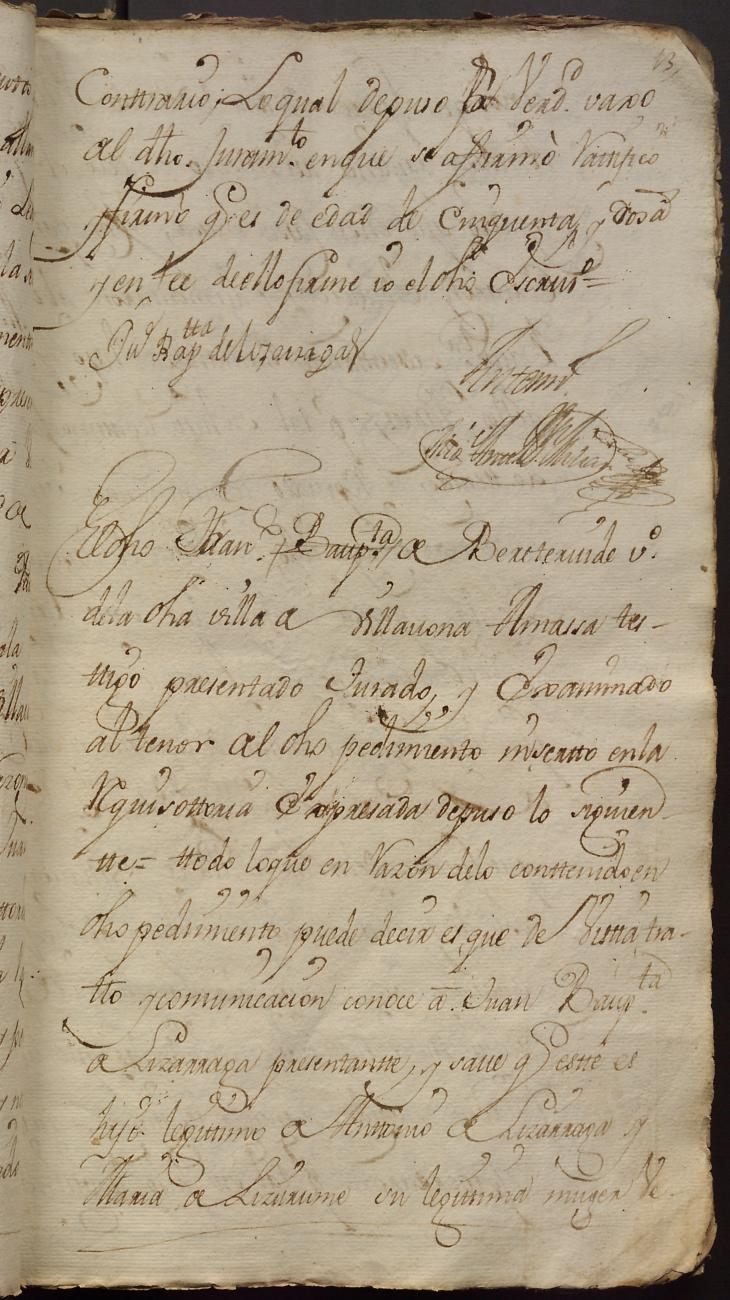 43
Conttrario, Lo qual depuso por Verd. vaxo
al dho. Juram.to en que se afirmò Ratifico
y firmò q es de edad de Cinquenta y dos a
y en fee de ello firme io el dho Escriv.o =
Ju.o Bap.tta de Lizarraga
Antemi
El dho Juan Bap.ta de Berrteruide v.o
de la dha villa de Villavona Amassa tes-
tigo presentado Jurado, y Examinado
al tenor del dho pedimiento inserto en la
Requisottoria Expresada depuso lo siguien-
tte = ttodo lo que en Razon de lo conttenido en
dho pedimiento puede decir es que de Vistta tra-
tto y comunicacion conoce a Juan Baup.ta
de Lizarraga presentantte, y save q estte es
hijo legittimo de Anttonio de Lizarraga y
Maria de Lizurume su legittima muger Ve-